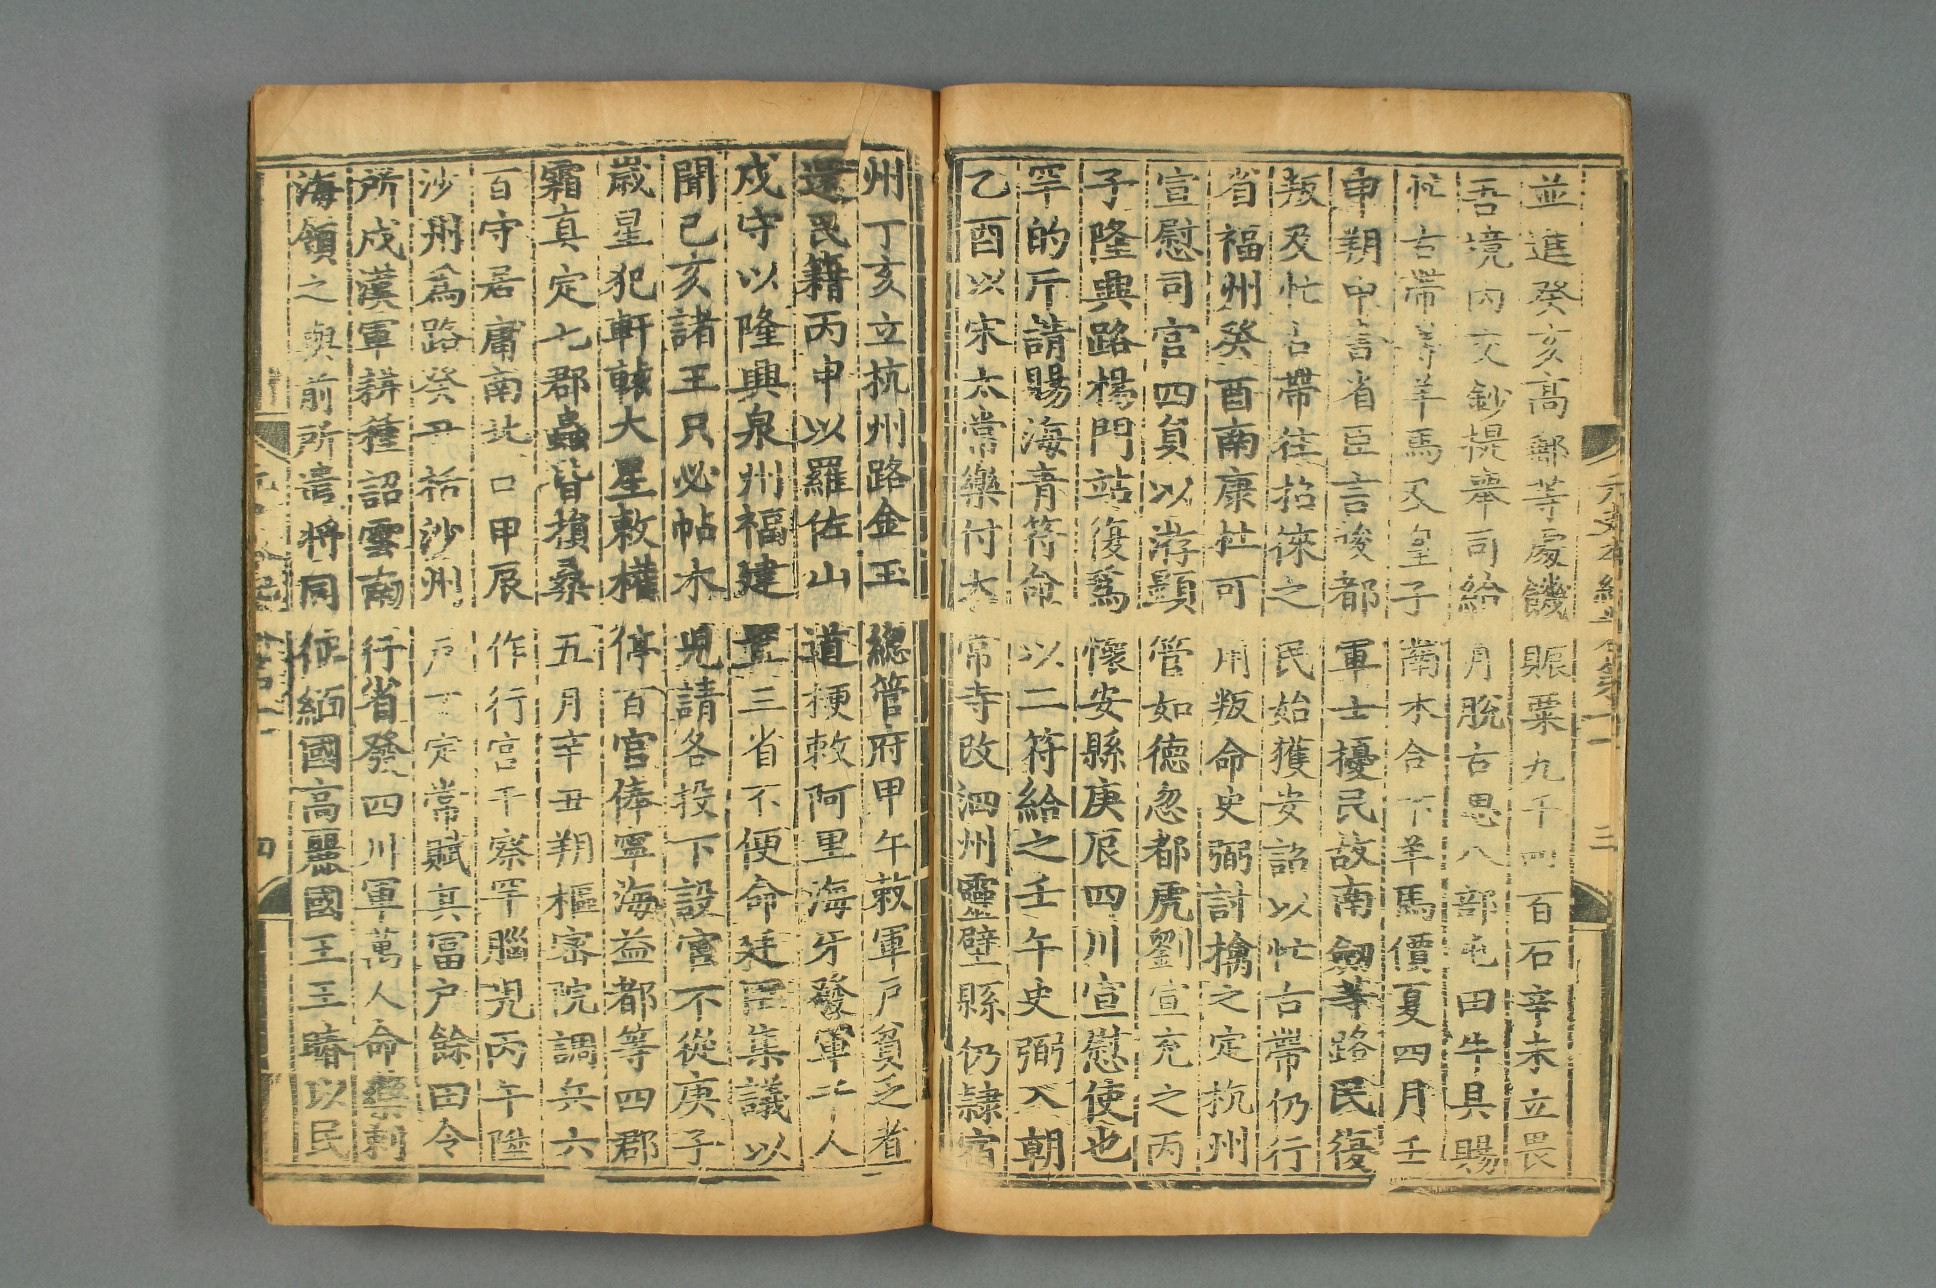 並進癸亥高郵等處饑賑粟九千四百石辛未立畏
吾境內交鈔提舉司給月脫古思八部屯田牛具賜
忙古帶等羊馬及皇子南木合下羊馬價夏四月壬
申朔中書省臣言後都軍士擾民故南劒等路民復
叛及忙古帶往招徠之民始獲安詔以忙古帶仍行
省福州癸酉南康杜可用叛命史弼討擒之定杭州
宣慰司官四員以游顯管如德忽都虎劉宣充之丙
子隆興路楊門站復爲懷安縣庚辰四川宣慰使也
罕的斤請賜海青符命以二符給之壬午史弼入朝
乙酉以宋太常樂付太常寺改泗州靈壁縣仍隷宿
元史本紀卷第十一
三
州丁亥立杭州路金玉總管府甲午敕軍戶貧乏者
還民籍丙申以羅佐山道梗敕阿里海牙發軍千人
戍守以隆興泉州福建置三省不便命廷臣集議以
聞己亥諸王只必帖木兒請各投下設官不從庚子
歲星犯軒轅大星敕權停百官俸寧海益都等四郡
霜真定七郡蟲皆損桑五月辛丑朔樞密院調兵六
百守居庸南北口甲辰作行宮于察罕腦兒丙午陞
沙州爲路癸丑括沙州戶丁定常賦其富戶餘田令
所戍漢軍耕種詔雲南行省發四川軍萬人命藥剌
海領之與前所遣將同征緬國高麗國王王賰以民
四